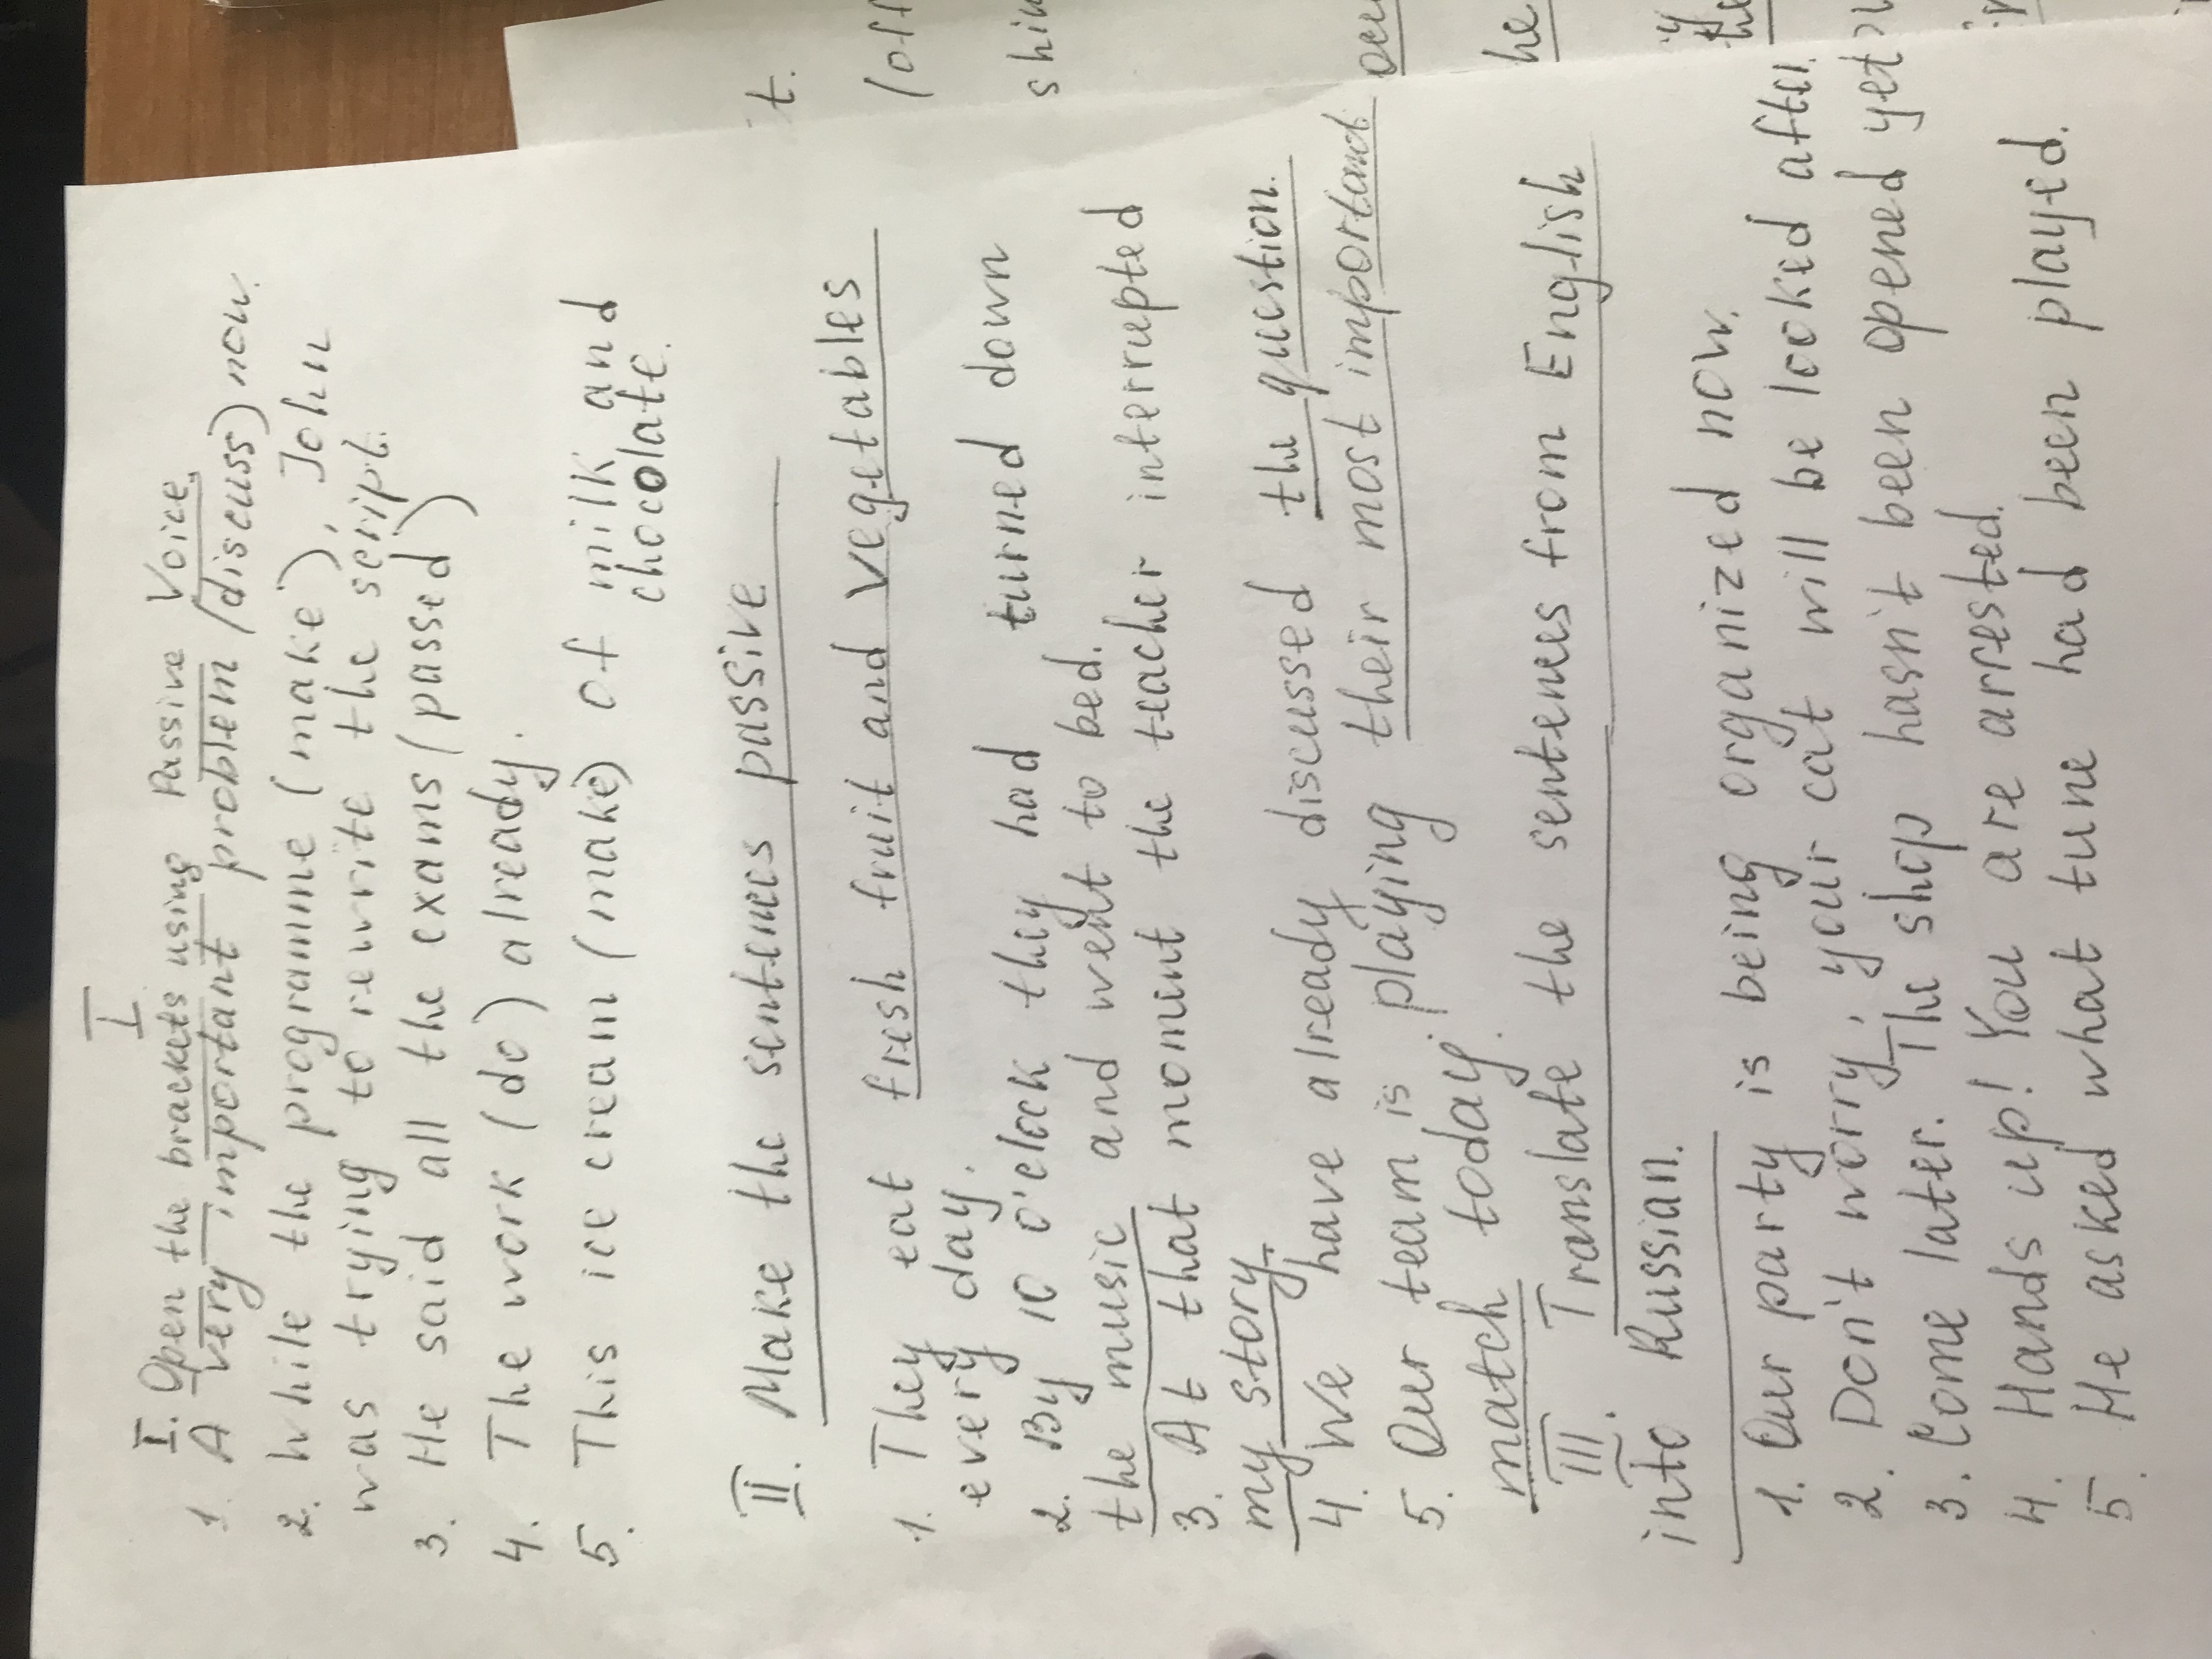 I
I. Open the brackets using Passive Voice.
1. A very important problem (discuss) now.
2. While the programme (make), John
was trying to rewrite the script.
3. He said all the exams (passed)
4. The work (do) already.
5. This ice cream (make) of milk and
chocolate.
II. Make the sentences passive
1. They eat fresh fruit and vegetables
every day.
2. By 10 o'clock they had turned down
the music and went to bed.
3. At that moment the teacher interrupted
my story.
4. We have already discussed the question.
5. Our team is playing their most important
match today.
III. Translate the sentenes from English
into Russian.
1. Our party is being organized now.
2. Don't worry, your cat will be looked after.
3. Come later. The shop hasn't been opened yet
4. Hands up! You are arrested.
5. He asked what tune had been played.
t.
(off
shin
he
the